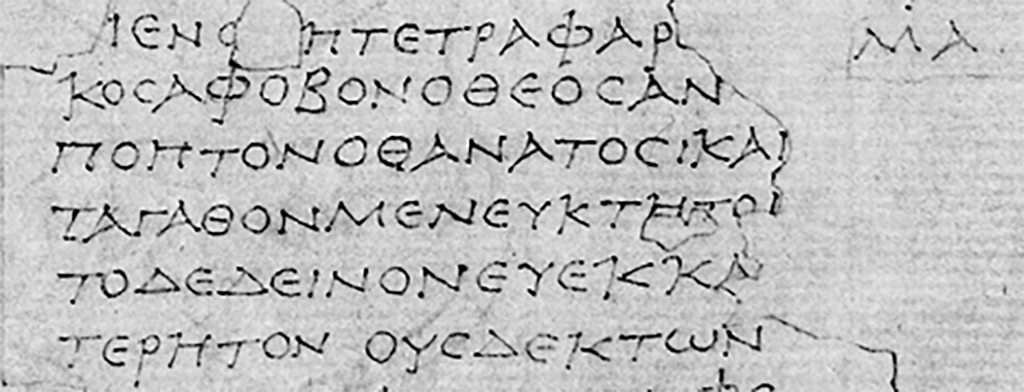 ΙΕΝΟ ΗΤΕΤΡΑΦΑΡ ΜΑ
ΚΟΣΑΦΟΒΟΝΟΘΕΟΣΑΝ
ΠΟΠΤΟΝΟΘΑΝΑΤΟΣΚΑΙ
ΤΑΓΑΘΟΝΜΕΝΕΥΚΤΗΤΟ
ΤΟΔΕΔΕΙΝΟΝΕΥΕΚΚΑ
ΤΕΡΗΤΟΝ ΟΥΣΔΕΚΤΩΝ